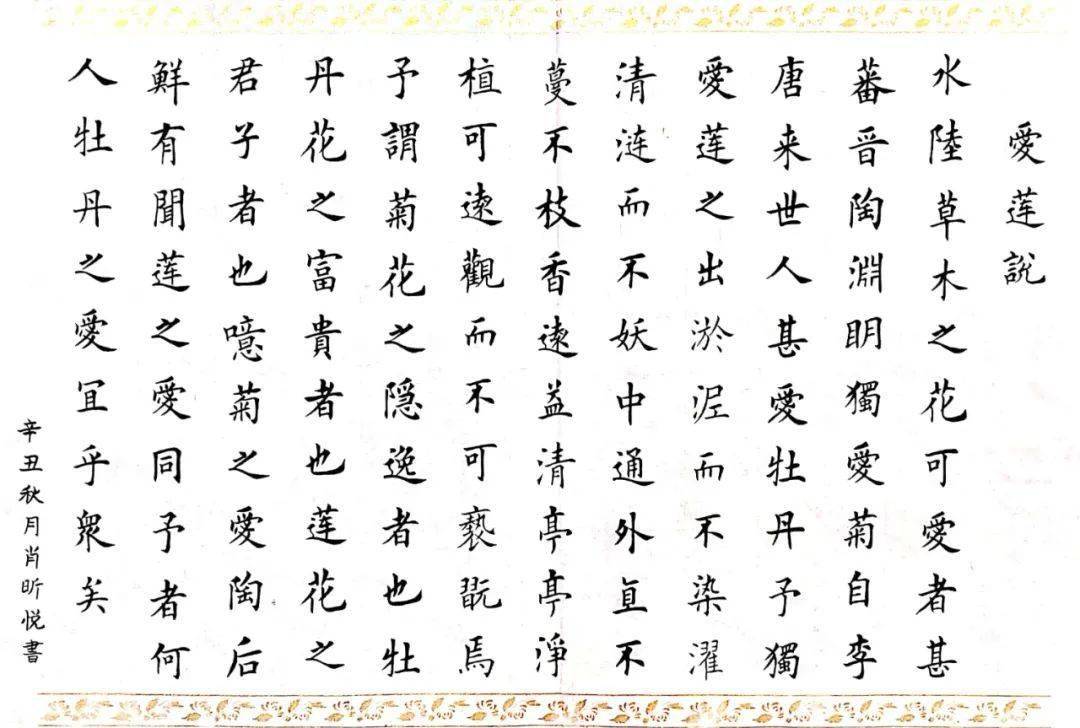 愛莲說
水陸草木之花可愛者甚
蕃晋陶淵明獨愛菊自李
唐来世人甚愛牡丹予獨
愛莲之出淤泥而不染濯
清涟而不妖中通外直不
蔓不枝香遠益清亭亭淨
植可遠觀而不可褻翫焉
予謂菊花之隐逸者也牡
丹花之富貴者也莲花之
君子者也噫菊之愛陶后
鮮有聞莲之愛同予者何
人牡丹之愛宜乎衆矣
辛丑秋月肖昕悦書